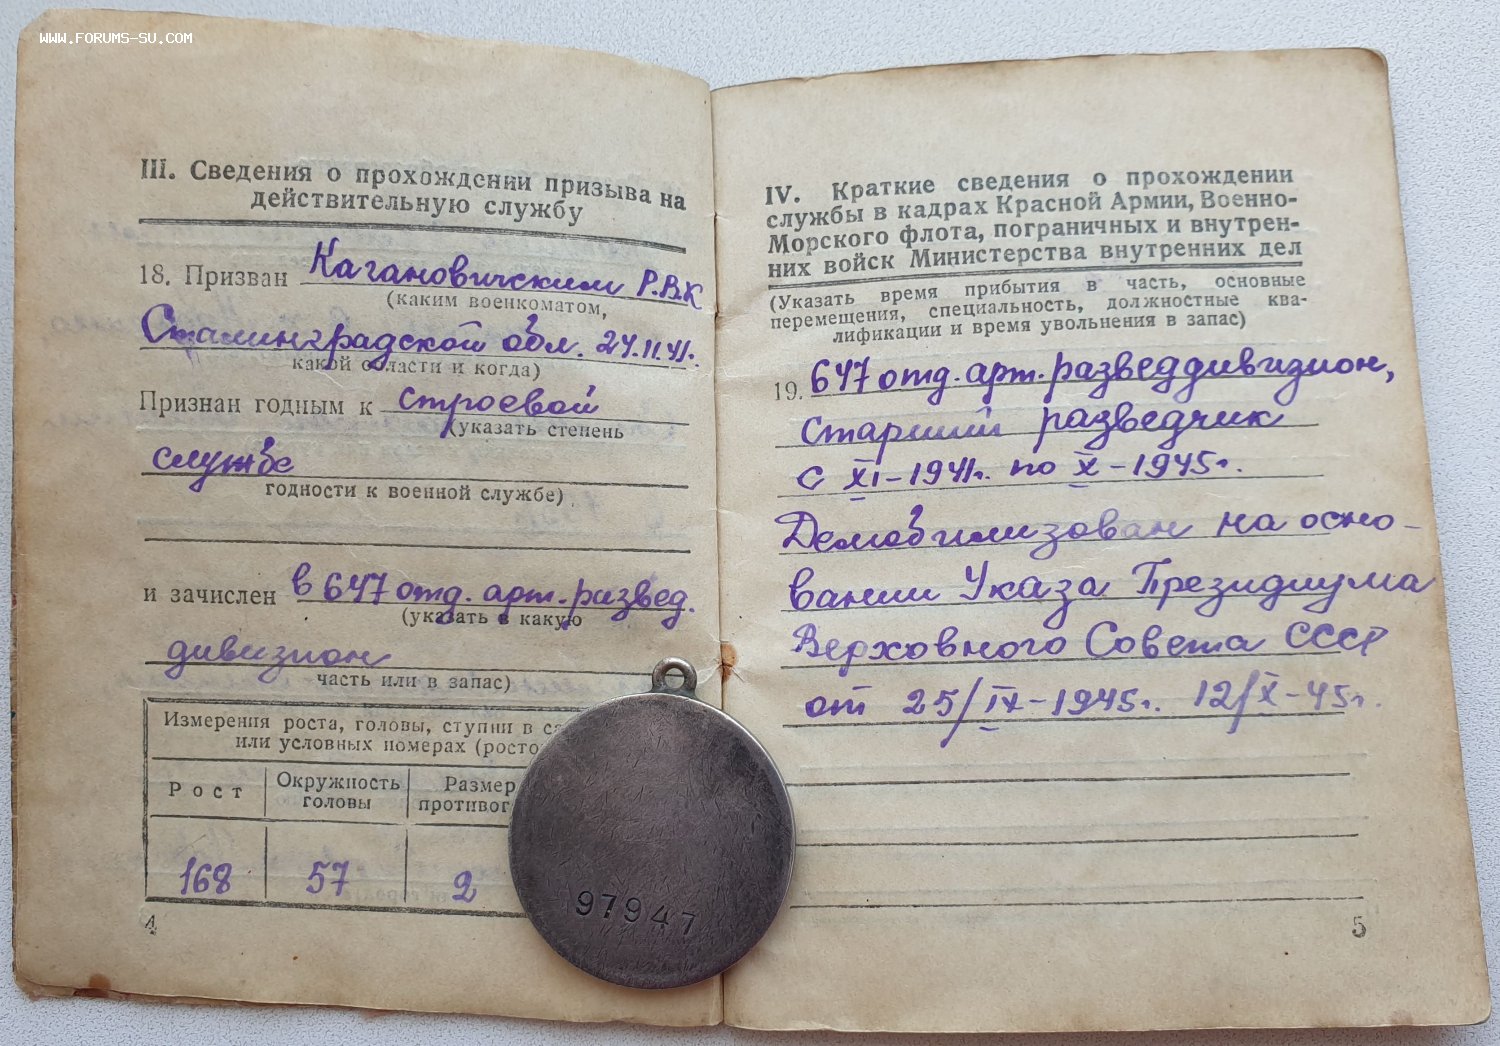 WWW.FORUMS-SU.COM
III. Сведения о прохождении призыва на
действительную службу
18. Призван Кагановичским Р.В.К
(каким военкоматом,
Сталинградской обл. 24.11.41г.
какой области и когда)
Признан годным к строевой
(указать степень
службе
годности к военной службе)
и зачислен в 647 отд. арт. развед.
(указать в какую
дивизион
часть или в запас)
Измерения роста, головы, ступни в са
или условных номерах (росто
Рост Окружность головы Размер противог
168 57 2
4
97947
IV. Краткие сведения о прохождении
службы в кадрах Красной Армии, Военно-
Морского флота, пограничных и внутрен-
них войск Министерства внутренних дел
(Указать время прибытия в часть, основные
перемещения, специальность, должностные ква-
лификации и время увольнения в запас)
19. 647 отд. арт. разведдивизион,
старший разведчик
с XI-1941г. по X-1945г.
Демобилизован на осно-
вании Указа Президиума
Верховного Совета СССР
от 25/IX-1945г. 12/X-45г.
5